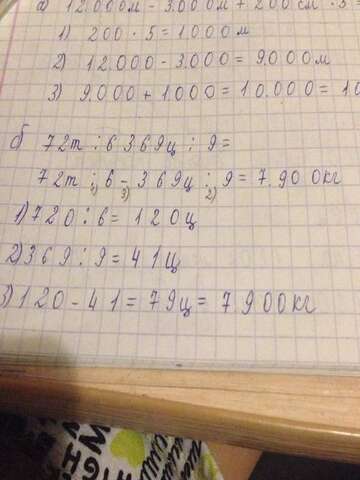 а) 12.000м - 3.000м + 200 см · 5 =
1) 200 · 5 = 1.000 м
2) 12.000 - 3.000 = 9.000 м
3) 9.000 + 1.000 = 10.000 = 10
б 72т : 6 369ц : 9 =
72т : 6 - 369ц : 9 = 7.900кг
1) 3) 2)
1) 720 : 6 = 120ц
2) 369 : 9 = 41ц
3) 120 - 41 = 79ц = 7.900кг